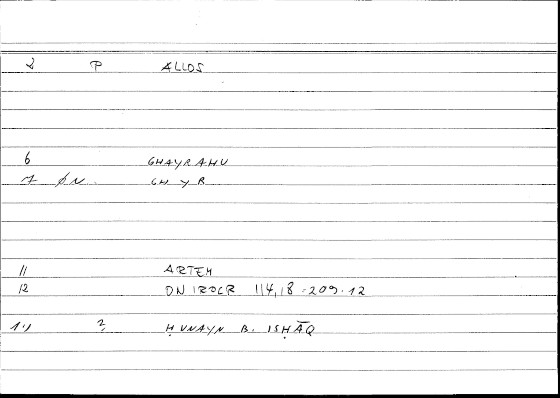 2 P ALLOS
6 GHAYRAHU
7 ØN. GHYR
11 ARTEM
12 ON IROCR 114,18-209.12
? ḤUNAYN B. ISḤĀQ